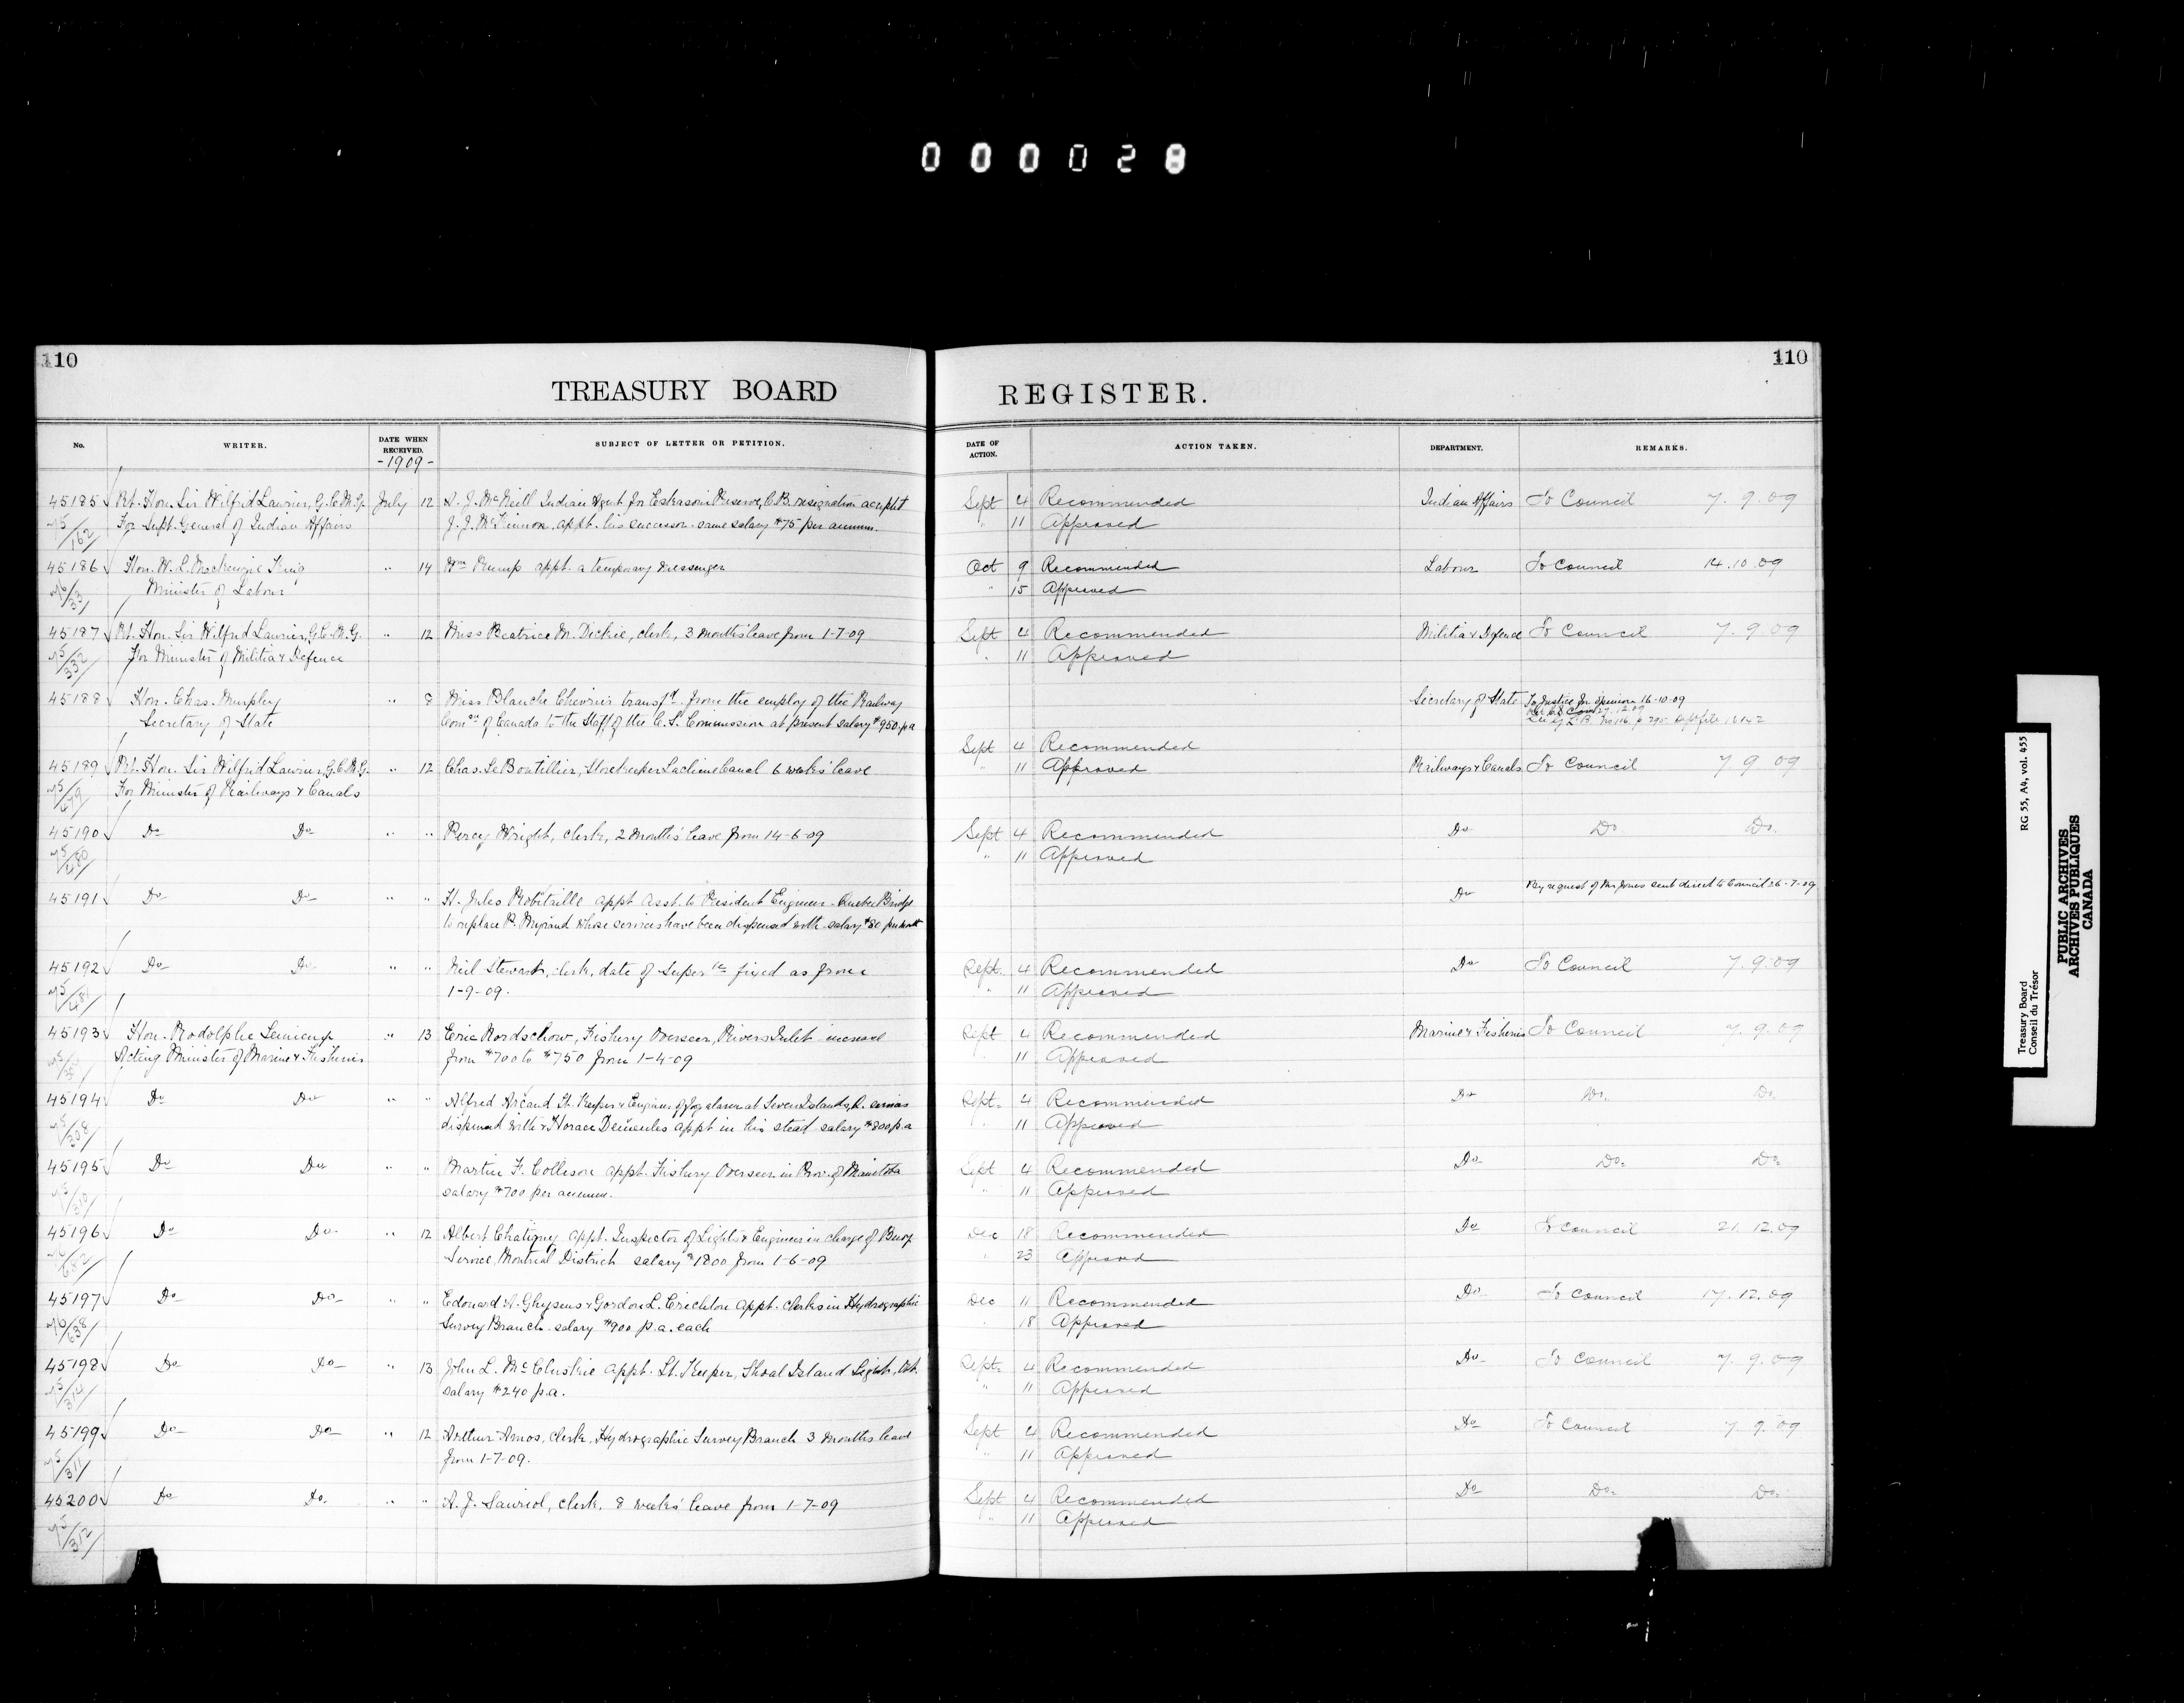 000028
110
110
TREASURY BOARD REGISTER.
No. WRITER. DATE WHEN RECEIVED. SUBJECT OF LETTER OR PETITION. DATE OF ACTION. ACTION TAKEN. DEPARTMENT. REMARKS.
-1909-
45185 Rt. Hon. Sir Wilfrid Laurier, G.C.M.G. July 12 A. J. McNeill Indian Agent for Eskasoni Reserve, C.B. resignation accept'd Sept 4 Recommended Indian Affairs To Council 7.9.09
75/162 For Supt. General of Indian Affairs J. J. McKinnon, appt. his successor same salary $75 per annum. " 11 Approved
45186 Hon. W. L. Mackenzie King " 14 Wm Rump appt. a temporary messenger Oct 9 Recommended Labour To Council 14.10.09
76/33 Minister of Labour " 15 Approved
45187 Rt. Hon. Sir Wilfrid Laurier, G.C.M.G. " 12 Miss Beatrice M. Dickie, clerk, 3 months' leave from 1-7-09 Sept 4 Recommended Militia & Defence To Council 7.9.09
75/332 For Minister of Militia & Defence " 11 Approved
45188 Hon. Chas. Murphy " 8 Miss Blanche Chevrier transfd. from the employ of the Railway Secretary of State To Justice for opinion 16-10-09
Secretary of State Comon of Canada to the Staff of the C. S. Commission at present salary $950 p.a
Sept 4 Recommended
45189 Rt. Hon. Sir Wilfrid Laurier, G.C.M.G. " 12 Chas. LeBoutillier, Storekeeper Lachine Canal 6 weeks' leave " 11 Approved Railways & Canals To Council 7 9 09
75/479 For Minister of Railways & Canals
45190 Do Do " " Percy Wright, clerk, 2 months' leave from 14-6-09 Sept 4 Recommended Do Do. Do.
75/480 " 11 Approved
45191 Do Do " " H. Jules Robitaille appt Asst. to Resident Engineer - Quebec Bridge Do By request of Mr Jones sent direct to Council 26-7-09
to replace R. Migrand whose services have been dispensed with salary $80 per month
45192 Do Do " " Neil Stewart, clerk, date of Super on fixed as from Sept. 4 Recommended Do To Council 7.9.09
1-9-09. " 11 Approved
45193 Hon. Rodolphe Lemieux " 13 Eric Nordschow, Fishery Overseer, Rivers Inlet increase Sept 4 Recommended Marine & Fisheries To Council 7.9.09
Acting Minister of Marine & Fisheries from $700 to $750 from 1-4-09 " 11 Approved
45194 Do Do " " Alfred Arcand Lt. Keeper & Engineer of fog alarm at Seven Islands, Q. services Sept. 4 Recommended Do Do. Do.
75/308 dispensed with & Horace Demeules appt in his stead salary $800 p.a " 11 Approved
45195 Do Do " " Martin F. Collison appt. Fishery Overseer in Prov. of Manitoba Sept 4 Recommended Do Do. Do.
75/310 salary $700 per annum. " 11 Approved
45196 Do Do " 12 Albert Chatigny appt. Inspector of Lights & Engineer in charge of Buoy Dec 18 Recommended Do To Council 21.12.09
76/682 Service, Montreal District salary $1800 from 1-6-09 " 23 Approved
45197 Do Do " " Edouard A. Ghysens & Gordon L. Crichton appt. clerks in Hydrographic Dec 11 Recommended Do To Council 17.12.09
76/638 Survey Branch salary $900 p.a. each " 18 Approved
45198 Do Do " 13 John L. McCluskie appt. Lt. Keeper, Shoal Island Light, Ont. Sept. 4 Recommended Do To Council 7.9.09
75/314 salary $240 p.a. " 11 Approved
45199 Do Do " 12 Arthur Amos, clerk, Hydrographic Survey Branch 3 months leave Sept 4 Recommended Do To Council 7.9.09
75/311 from 1-7-09. " 11 Approved
45200 Do Do. " " A. J. Lauriol, clerk, 8 weeks' leave from 1-7-09 Sept 4 Recommended Do Do. Do.
75/312 " 11 Approved
Treasury Board RG 55, A4, vol. 455
Conseil du Trésor
PUBLIC ARCHIVES
ARCHIVES PUBLIQUES
CANADA